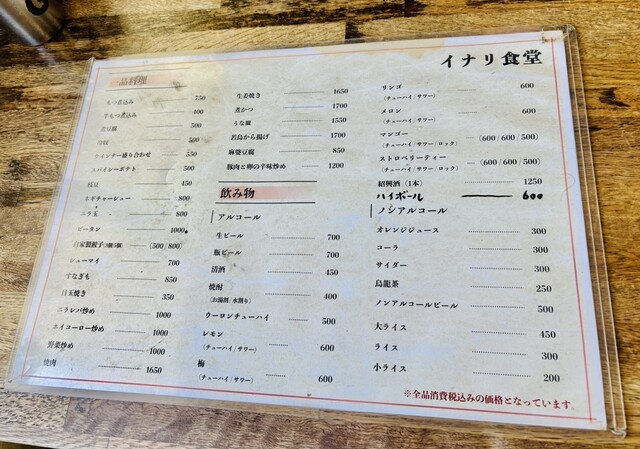 イナリ食堂
一品料理
もつ煮込み 750
牛もつ煮込み 400
煮豆腐 500
500
ウインナー盛り合わせ 550
スパイシーポテト 500
枝豆 450
ネギチャーシュー 800
ニラ玉 800
ピータン 1000
自家製餃子(3個/5個) (500/800)
シューマイ 700
すなぎも 850
目玉焼き 350
ニラレバ炒め 1000
ホイコーロー炒め 1000
野菜炒め 1000
焼肉 1650
生姜焼き 1650
煮かつ 1700
うな頭 1550
若鳥から揚げ 1700
麻婆豆腐 850
豚肉と卵の辛味炒め 1200
飲み物
アルコール
生ビール 700
瓶ビール 700
清酒 450
焼酎 400
(お湯割/水割り)
ウーロンチューハイ 500
レモン 600
(チューハイ/サワー)
梅 600
(チューハイ/サワー)
リンゴ 600
(チューハイ/サワー)
メロン 600
(チューハイ/サワー)
マンゴー (600/600/500)
(チューハイ/サワー/ロック)
ストロベリーティー (600/600/500)
(チューハイ/サワー/ロック)
紹興酒(1本) 1250
ハイボール 600
ノンアルコール
オレンジジュース 300
コーラ 300
サイダー 300
烏龍茶 250
ノンアルコールビール 500
大ライス 450
ライス 300
小ライス 200
※全品消費税込みの価格となっています。